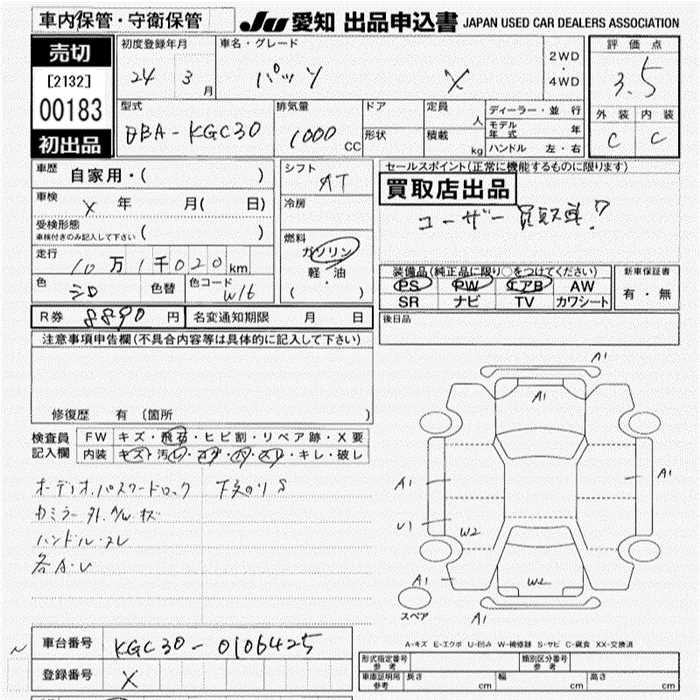 車内保管・守衛保管
JU 愛知 出品申込書 JAPAN USED CAR DEALERS ASSOCIATION
売切
[2132]
00183
初出品
初度登録年月 車名・グレード
24 3 月 パッソ X
2WD
・
4WD
評価点
3.5
外装 内装
C C
型式 排気量 ドア 定員
DBA-KGC30 1000 CC 形状 積載 人 kg
ディーラー・並行
モデル年式 年
ハンドル 左・右
車歴 自家用・( )
車検 X 年 月( 日)
受検形態 ( )
車検付きのみ記入して下さい
走行 10万1千020km
色 シロ 色替 色コード W16
シフト AT
冷房
燃料
ガソリン
軽・油
( )
セールスポイント(正常に機能するものに限ります)
買取店出品
ユーザー買取車!
装備品(純正品に限り○をつけてください) 新車保証書
PS PW エアB AW 有・無
SR ナビ TV カワシート
R券 8890 円 名変通知期限 月 日
後日品
注意事項申告欄(不具合内容等は具体的に記入して下さい)
修復歴 有(箇所 )
検査員 FW キズ・飛石・ヒビ割・リペア跡・X要
記入欄 内装 キズ・汚レ・コゲ・穴・スリ・キレ・破レ
オーディオパスワードロック 下廻りS
カミラー外、P/Wキズ
ハンドルスレ
各A・U
A1
A1
A1
A1
U1
W2
W2
A1
A1
スペア
A-キズ E-エクボ U-凹み W-補修跡 S-サビ C-腐食 XX-交換済
車台番号 KGC30-0106425
登録番号 X
型式指定番号 参考 類別区分番号 参考
車庫証明用 参考 長さ cm 幅 cm 高さ cm